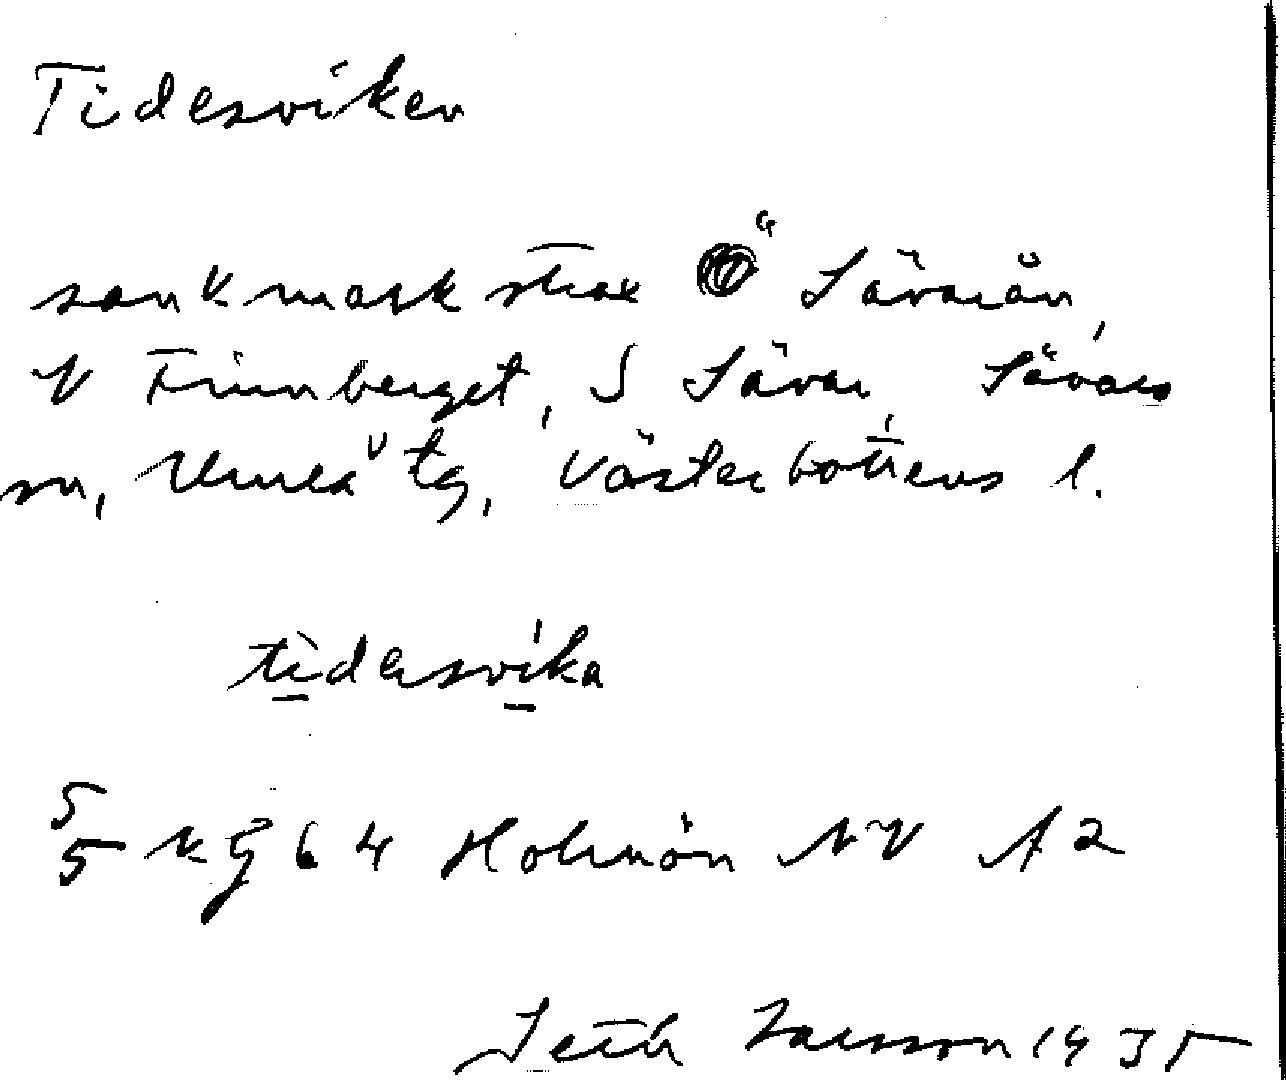 Tidesviken
sankmark strax Ö Sävarån,
V Finnberget, S Sävar, Sävars
sn, Umeå tg, Västerbottens l.
tìdesvíka
5 kg 64 Holmön NV A2
Seth Larsson 1935